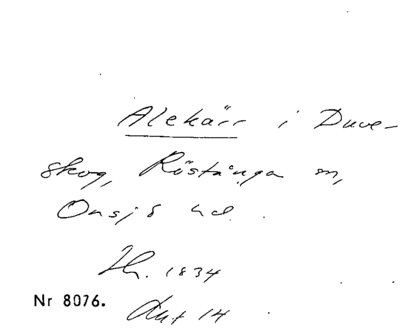 Alekärr i Duve-
skog, Röstånga sn,
Onsjö hd.
Th. 1834
Nr 8076.
Akt 14